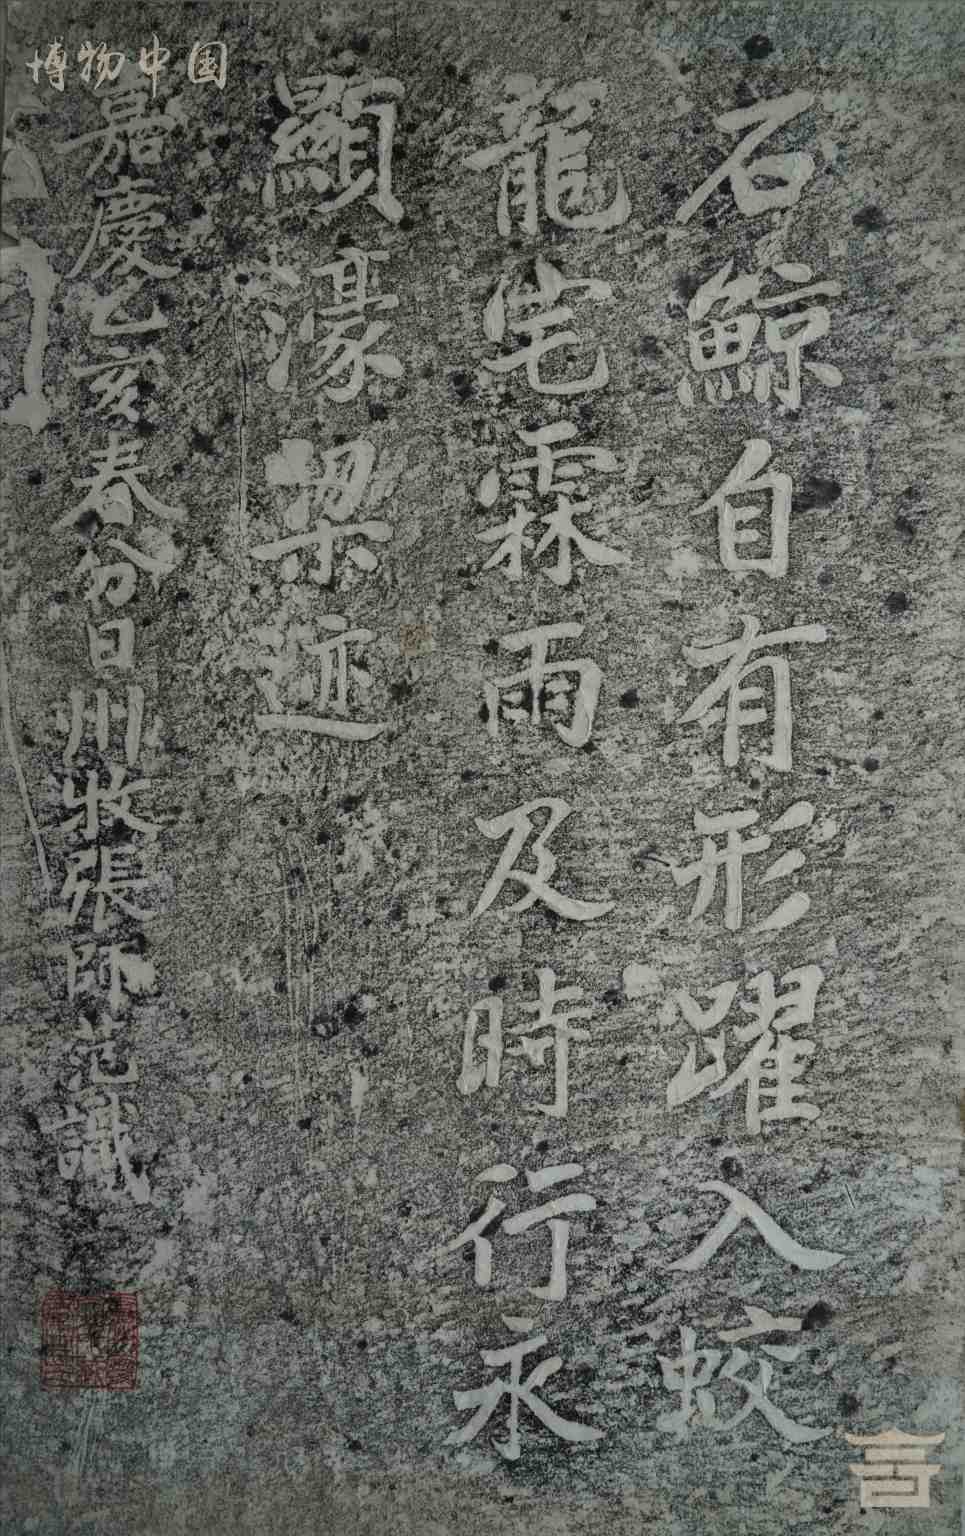 博物中国
石鯨自有形躍入蛟
龍宅霖雨及時行永
顯濠梁迹
嘉慶乙亥春分日州牧張師范識